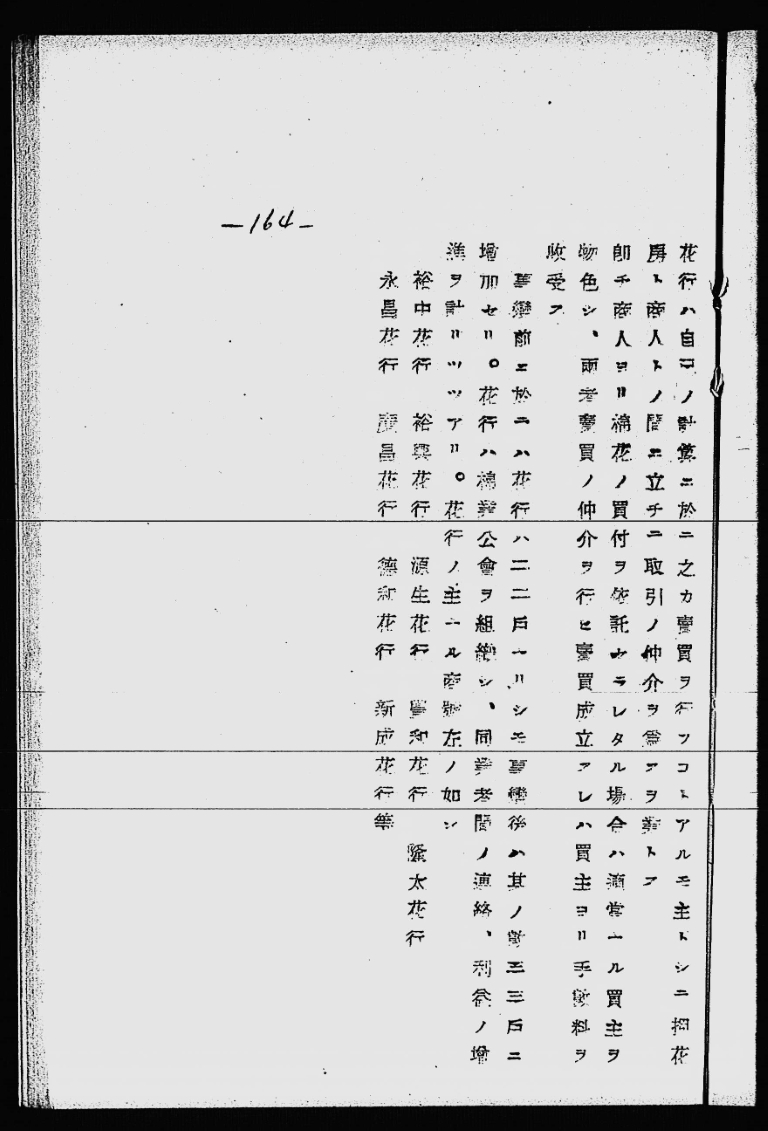 花行ハ自己ノ計算ニ於テ之カ賣買ヲ行フコトアルモ主トシテ 花
房ト商人トノ間ニ立チテ取引ノ仲介ヲ爲スヲ業トス
卽チ商人ヨリ棉花ノ買付ヲ依託セラレタル場合ハ適當ナル買主ヲ
物色シ、兩者賣買ノ仲介ヲ行ヒ賣買成立スレハ買主ヨリ手數料ヲ
收受ス
事變前ニ於テハ花行ハ二二戶ナリシモ事變後ハ其ノ數三三戶ニ
增加セリ。花行ハ棉業公會ヲ組織シ、同業者間ノ連絡、利益ノ增
進ヲ計リツツアリ。花行ノ主ナル商號左ノ如シ
裕中花行 裕興花行 源生花行 和花行 太花行
永昌花行 慶昌花行 德和花行 新成花行等
－164－